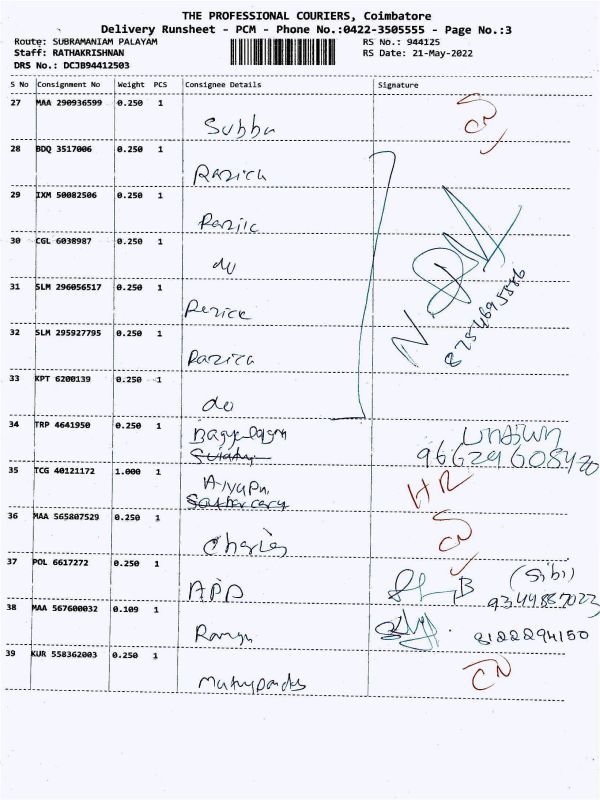 THE PROFESSIONAL COURIERS, Coimbatore
Delivery Runsheet - PCM - Phone No.:0422-3505555 - Page No.:3
Route: SUBRAMANIAM PALAYAM RS No.: 944125
Staff: RATHAKRISHNAN RS Date: 21-May-2022
DRS No.: DCJB94412503
S No Consignment No Weight PCS Consignee Details Signature
27 MAA 290936599 0.250 1
Subbu CN
28 BDQ 3517006 0.250 1
Razica
29 IXM 50082506 0.250 1
30 CGL 6038987 0.250 1
do
31 SLM 296056517 0.250 1
8754695886
32 SLM 295927795 0.250 1
Razica
33 KPT 6200139 0.250 1
do
34 TRP 4641950 0.250 1
35 TCG 40121172 1.000 1
HR
36 MAA 565807529 0.250 1
Charles CN
37 POL 6617272 0.250 1
APD (Sibi)
9344887023
38 MAA 567600032 0.109 1
Ramya 8122294150
39 KUR 558362003 0.250 1
CN